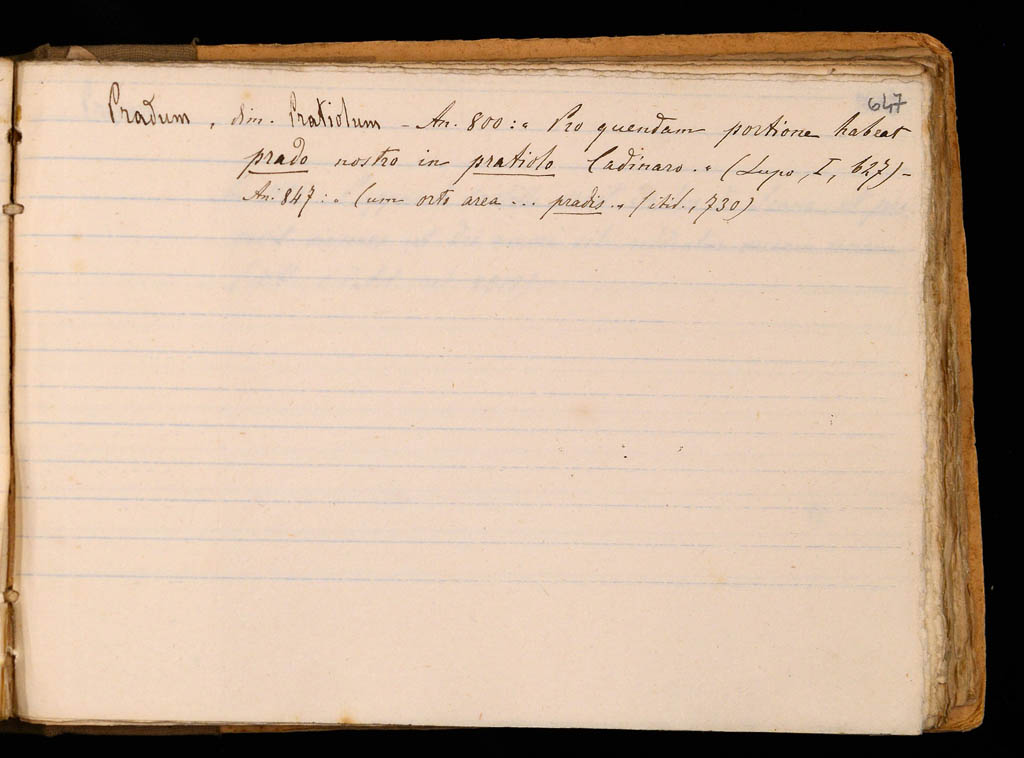 647
Pradum, dim. Pratiolum - An. 800: « Pro quendam portione habeat
prado nostro in pratiolo Cadinaro. » (Lupo, I, 627) -
An. 847: « Cum orto area ... pradis. » (ibid., 730)